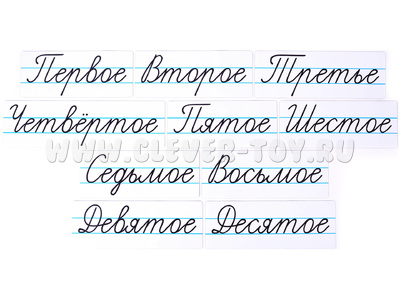 Первое Второе Третье
Четвёртое Пятое Шестое
WWW.CLEVER-TOY.RU
Седьмое Восьмое
Девятое Десятое